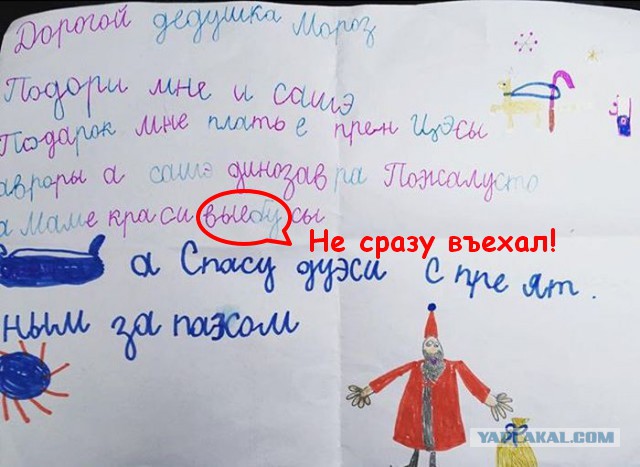 Дорогой дедушка Мороз
Подори мне и сашэ
Подарок мне плать е прен цэсы
авроры а сашэ динозав ра Пожалусто
а маме краси выебу сы
Не сразу въехал!
а Спасу духи с пре ят.
ным за пахом
YAPLAKAL.COM